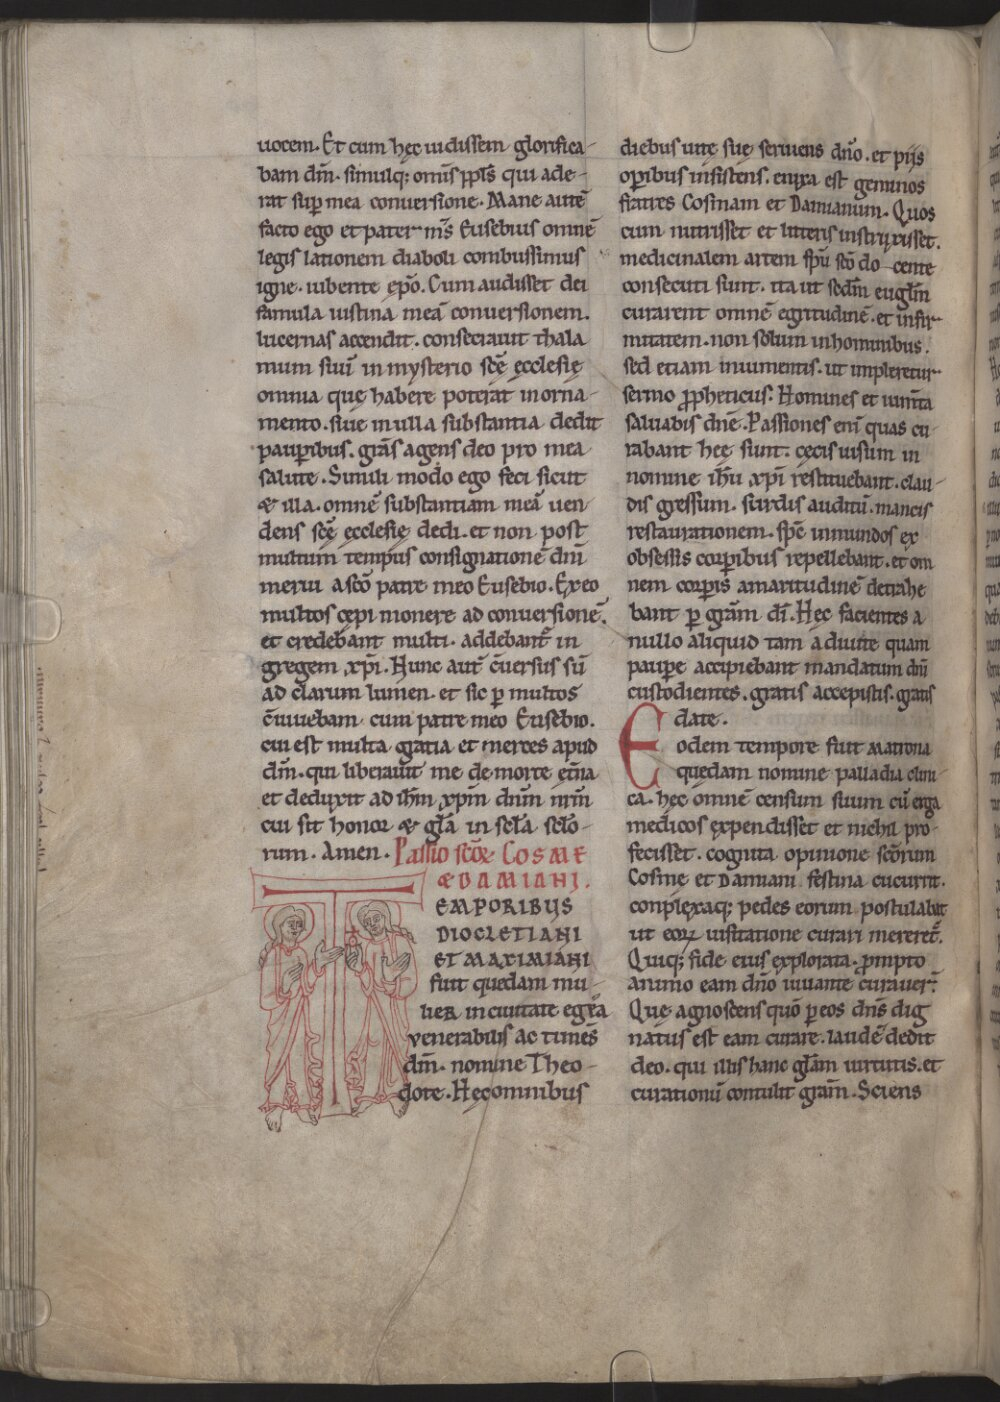 uocem. Et cum hęc uidissem glorifica-
bam dm̄. simulq; om̄s ppl̄s qui ade-
rat sup̱ mea conuersione. Mane autē
facto ego et pater m̄s Eusebius omnē
legis lationem diaboli combussimus
igne. iubente ep̄o. Cum audisset dei
famula iustina meā conuersionem.
lucernas accendit. consecrauit thala
mum suū in mysterio scē ęcclesię
omnia quę habere poterat in orna-
mento. siue in ulla substantia dedit
paup̱ibus. grās agens deo pro mea
salute. Simili modo ego feci sicut
& illa. omnē substantiam meā uen-
dens scē ęcclesię dedi. et non post
multum tempus consignationē dn̄i
merui a scō patre meo Eusebio. Ex eo
multos cępi monere ad conuersionē.
et credebant multi. addebant̄ in
gregem xp̄i. Hunc aut̄ c̄uersus sū
ad clarum lumen. et sic p̱ multos
c̄uiuebam cum patre meo Eusebio.
cui est multa gratia et merces apud
dm̄. qui liberauit me de morte et̄na
et deduxit ad ih̄m xp̄m dn̄m nr̄m
cui sit honor & gl̄a in sec̄la sec̄lo-
rum. Amen. Passio scōꝝ COSME
& DAMIANI.
TEMPORIBUS
DIOCLETIANI
ET MAXIMIANI
fuit quedam mu-
lier in ciuitate egęa
venerabilis ac timēs
dm̄. nomine Theo-
dote. Hęc omnibus
diebus uitę suę seruiens dn̄o. et piis
op̱ibus insistens. enixa est geminos
fratres Cosmam et Damianum. Quos
cum nutrisset et litteris instruxisset.
medicinalem artem sp̄u scō docente
consecuti sunt. ita ut sedm̄ eugl̄m
curarent omnē egritudinē. et infir-
mitatem. non solum in hominibus.
sed etiam in iumentis. ut impleretur
sermo ꝓpheticus. Homines et iumta
saluabis dn̄e. Passiones eni quas cu
rabant hęę sunt: cęcis uisum in
nomine ih̄u xp̄i restituebant. clau-
dis gressum. surdis auditū. mancis
restaurationem. sp̄c inmundos ex
obsessis corp̱ibus repellebant. et om
nem corp̱is amaritudinē detrahe
bant p̱ grām di. Hęc facientes a
nullo aliquid tam a diuite quam
paup̱e accipiebant mandatum dn̄i
custodientes. gratis accepistis. gratis
date.
Eodem tempore fuit matrona
quedam nomine palladia clini-
ca. hęc omnē censum suum cū erga
medicos expendisset et nichil pro-
fecisset. cognita opinione scōrum
Cosmę et Damiani festina cucurrit.
conplexaq; pedes eorum postulabat
ut eorꝝ uisitatione curari mereret̄.
Quiq; fide eius explorata. ꝓmpto
animo eam dn̄o iuuante curauer̄.
Quę agnoscens quō p̱ eos dn̄s dig
natus est eam curare. laudē dedit
deo. qui illis hanc gl̄am uirtutis. et
curationū contulit grām. Sciens